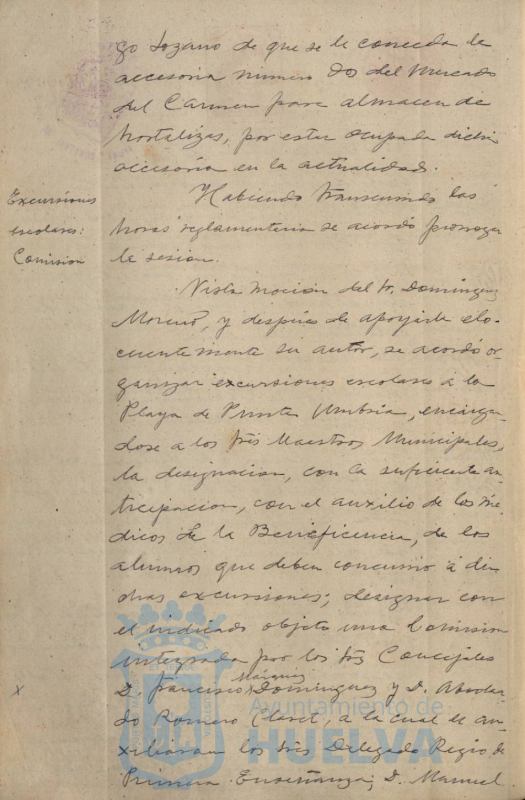 go Lozano de que se le conceda la
accesoria número dos del Mercado
del Carmen para almacen de
hortalizas, por estar ocupada dicha
accesoria en la actualidad.
Excursiones
escolares:
Comision
Habiendo transcurrido las
horas reglamentarias se acordó prorrogar
la sesion.
Vista mocion del Sr. Dominguez
Moreno, y despues de apoyarla elo-
cuentemente su autor, se acordó or-
ganizar excursiones escolares á la
Playa de Punta Umbria, encargan-
dose a los Srs Maestros Municipales,
la designacion, con la suficiente an-
ticipacion, con el auxilio de los mé-
dicos de la Beneficencia, de los
alumnos que deben concurrir á di-
chas excursiones; designar con
el indicado objeto una Comision
integrada por los Srs Concejales
D. Francisco Marquez Dominguez y D. Abelar-
do Romero Claret, a la cual se au-
xiliaran los Srs Delegado Regio de
Primera Enseñanza, D. Manuel
x
Ayuntamiento de
HUELVA